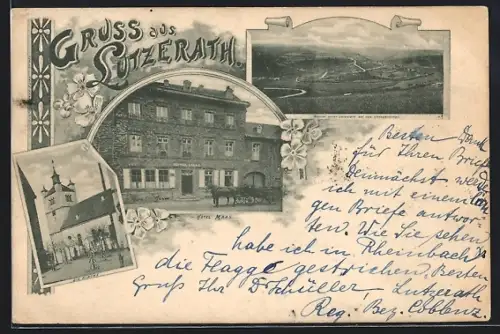 GRUSS aus
LUTZERATH.
HOTEL MAAS
Besten Dank
für Ihren Brief
Demnächst werde
ich mit einem lan
gen Briefe antwor-
ten. Wie Sie sehen
habe ich in Rheinbach
die Flagge gestrichen. Besten
Gruß Ihr Dr Schüller Lutzerath
Reg. Bez. Coblenz.